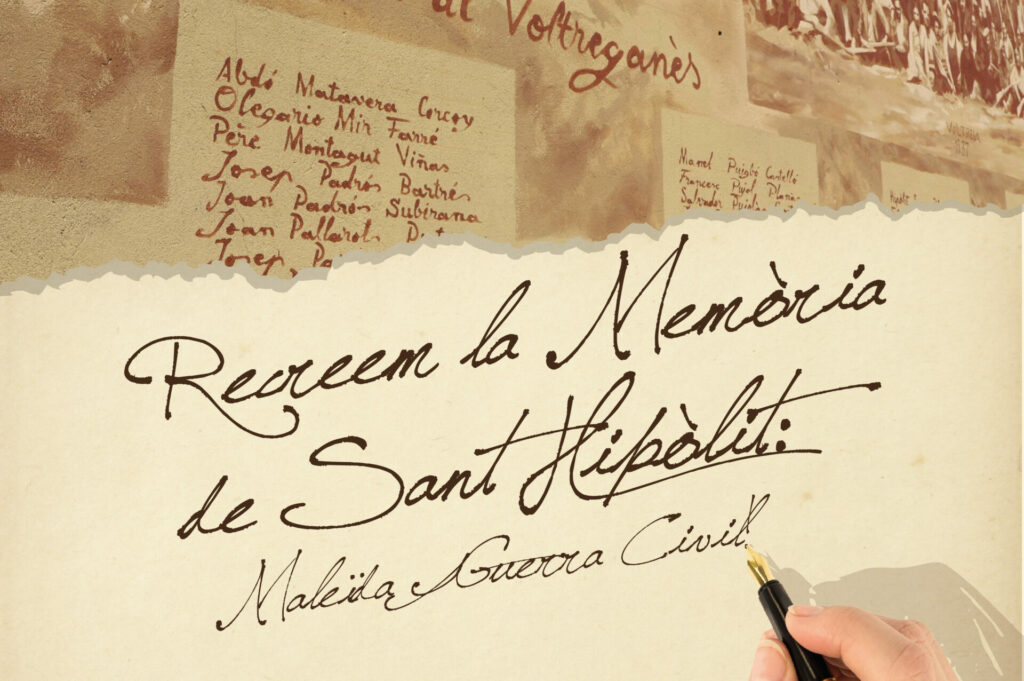 al Voltreganès
Abdó Matavera Corcoy
Olegario Mir Farré
Père Montagut Viñas
Josep Padrós Bartrés
Joan Padrós Subirana
Joan Pallarols
Josep
Manel Puigbó Castelló
Francesc Pujol Planas
Salvador
Recreem la Memòria
de Sant Hipòlit:
Maleïda Guerra Civil!